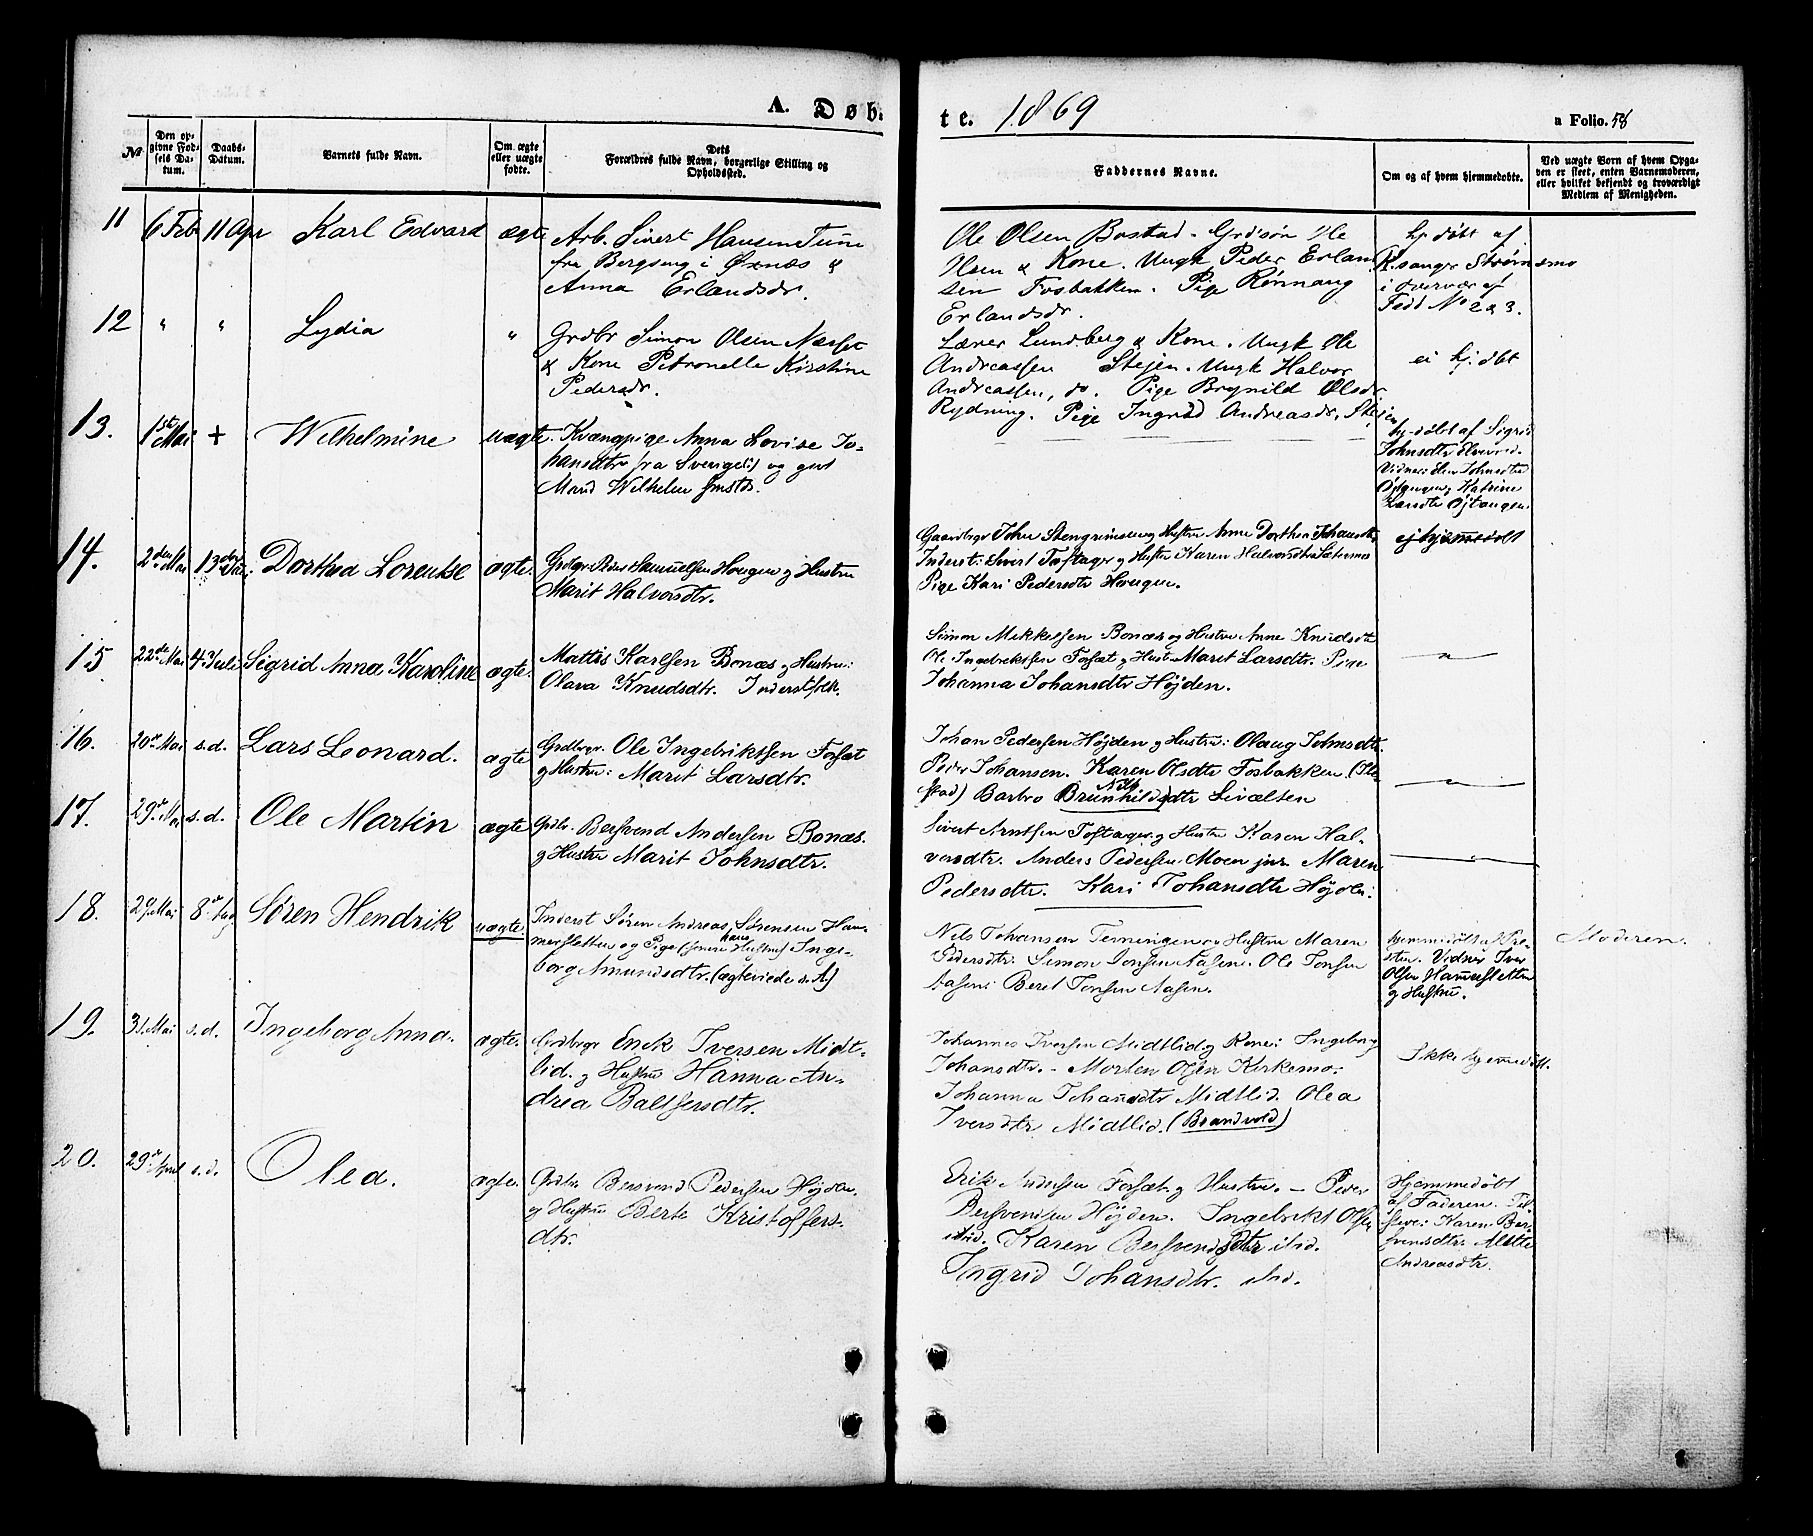 A. Døb-
te. 1869
a Folio. 58
№
Den op-
givne Fød-
sels Da-
tum.
Daabs-
Datum.
Barnets fulde Navn.
Om ægte
eller uægte
fødte.
Dets
Forældres fulde Navn, borgerlige Stilling og
Opholdssted.
Faddernes Navne.
Om og af hvem hjemmedøbte.
Ved uægte Børn af hvem Opga-
ven er skeet, enten Barnemoderen,
eller hvilket bekjendt og troværdigt
Medlem af Menigheden.
11
6 Feb
11 Apr
Karl Edvard
ægte
Arb. Sivert Hansen
fra Bergseng i Øxnæs &
Anna Erlandsdr.
Ole Olsen Bostad. Grds'ön Ole
Olsen & Kone. Ungk Peder Erland
sen Fosbakken. Pige Rønnaug
Erlandsdr.
hj. döbt af
Kirkesanger Strømsmo
i overvær af
Fadd No 2 & 3.
12
"
"
Lydia
"
Grdbr Simon Olsen
& Kone Petronelle Kirstine
Pedersdr.
Lærer Lundberg & Kone. Ungk Ole
Andreassen Stejen. Ungk Halvor
Andreassen, do. Pige Brynild Olsdr
Rydning. Pige Ingrid Andreasdr. Stejen
ei hj. döbt
13.
1ste Mai
+
Wilhelmine
uægte.
Kvængpige Anna Lovise Jo-
hansdtr (fra Sverige) og gift
Mand Wilhelm
hj-döbt af Sigrid
Johnsdtr
Vidner: Johnsdtr
Katrine
Larsdtr Øjtangen
14.
2den Mai
13de Juni
Dorthea Lorentse
ægte.
Grdbgr Peder Samuelsen Hougen og Hustru
Marit Halvorsdtr.
Gaardbgr John Stengrimsen og Hustru Anne Dorthea Johansdtr,
Inderst: Sivert Toftager og Hustru Karen Halvorsdtr
Pige Kari Pedersdtr Hougen.
ej hjemmedöbt
15
22de Mai
4 Juli
Sigrid Anna Karoline
ægte.
Mattis Karlsen Bonæs og Hustru:
Olava Knudsdtr. Inderstfolk.
Simon Mikkelsen Bonæs og Hustru Anne Knudsdtr
Ole Ingebrektsen Forsæt og Hustru Marit Larsdtr. Pige
Johanna Johansdtr Höjden.
"
16.
20de Mai
s.d.
Lars Leonard.
ægte
Grdbgr. Ole Ingebriktsen Forsæt
og Hustru: Marit Larsdtr.
Johan Pedersen Höjden og Hustru: Olaug Johnsdtr.
Peder Johansen. Karen Olsdtr Fosbakken
Barbro Brünhildsdtr
"
17.
29de Mai
s.d.
Ole Martin
ægte
Grdbr. Bersvend Andersen Bonæs.
og Hustru Marit Johnsdtr.
Sivert Arntsen Toftager og Hustru Karen Hal-
vorsdtr. Anders Pedersen Moen jur. Maren
Pedersdtr. Kari Johansdtr Höjden:
"
18.
29 Mai
8de Aug
Søren Hendrik
uægte.
Inderst Søren Andreas Sørensen Ham-
merstetten og Pige (senere hans Hustru) Inge-
borg Amundsdtr. (ægteviede s. A)
Nels Johansen Temmingen og Hustru Maren
Pedersdtr: Simon Jonsen Aasen. Ole Jonsen
Aasen: Beret Jonsen Aasen.
hjemmedöbt af Præ-
sten. Vidner Iver
Olsen
og Hustru.
Moderen.
19.
31 Mai
s.d.
Ingeborg Anna.
ægte.
Grdbrgr Erick Iversen Midt-
lid. og Hustru Hanna An-
drea Baltsersdtr.
Johannes Iversen Midtlid og Kone: Ingeborg
Johansdtr. - Morten Olsen Kirkemo-
Johanna Johansdtr Midtlid. Olea
Iversdtr. Midtlid. (Brandvold)
Ikke hjemmedöbt.
20.
29de April
s.d.
Olea.
ægte.
Grdbr Bersvend Pedersen Höjden.
og Hustru Berte Kristoffers-
dtr.
Erik Andersen Forsæt og Hustru. - Peder
Bersvendsen Höjden. Ingebrikt Olsen
ibid. Karen Bersvendsdtr ibid.
Ingrid Johansdtr. ibid.
Hjemmedöbt
af Faderen. Til-
stede: Karen Ber-
svensdtr. Alette
Andreasdtr.